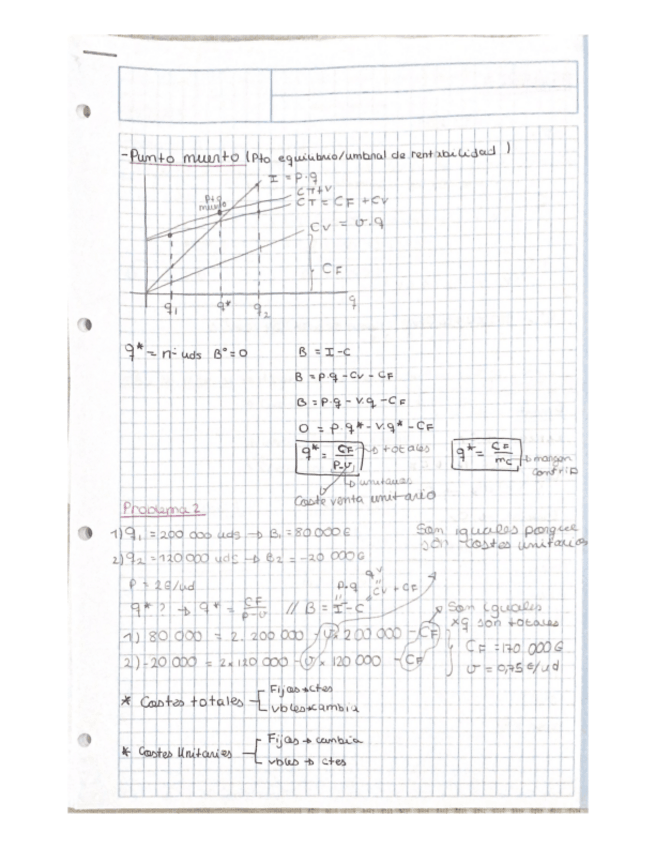 - Punto muerto (Pto equilibrio/umbral de rentabilidad)
I = p·q
CT+V
CT = CF + CV
Pto muerto
CV = v·q
CF
q1 q* q2 q
q* = nº uds B° = 0
B = I - C
B = p·q - CV - CF
B = p·q - v·q - CF
0 = p·q* - v·q* - CF
q* = CF / p-v → totales
q* = CF / mc → margen contrib
→ unitarios
Coste venta unitario
Problema 2
1) q1 = 200 000 uds → B1 = 80 000 €
Son iguales porque son costes unitarios
2) q2 = 120 000 uds → B2 = -20 000 €
P = 2 €/ud
p·q
q·v
CV + CF
q* ? → q* = CF / p-v // B = I - C
Son iguales xq son totales
1) 80 000 = 2 · 200 000 - v × 200 000 - CF
CF = 170 000 €
2) -20 000 = 2 × 120 000 - v × 120 000 - CF
v = 0,75 €/ud
* Costes totales
Fijos → ctes
vbles → cambia
* Costes Unitarios
Fijos → cambia
vbles → ctes